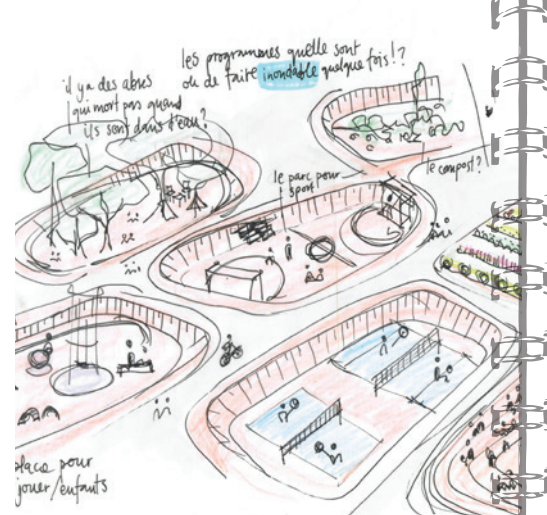 les programmes quelle sont
ou de faite inondable quelque fois!?
il y a des abus
qui mort pas quand
ils sont dans d'eau?
le parc pour
sport
le compost?
place pour
jouer/enfants